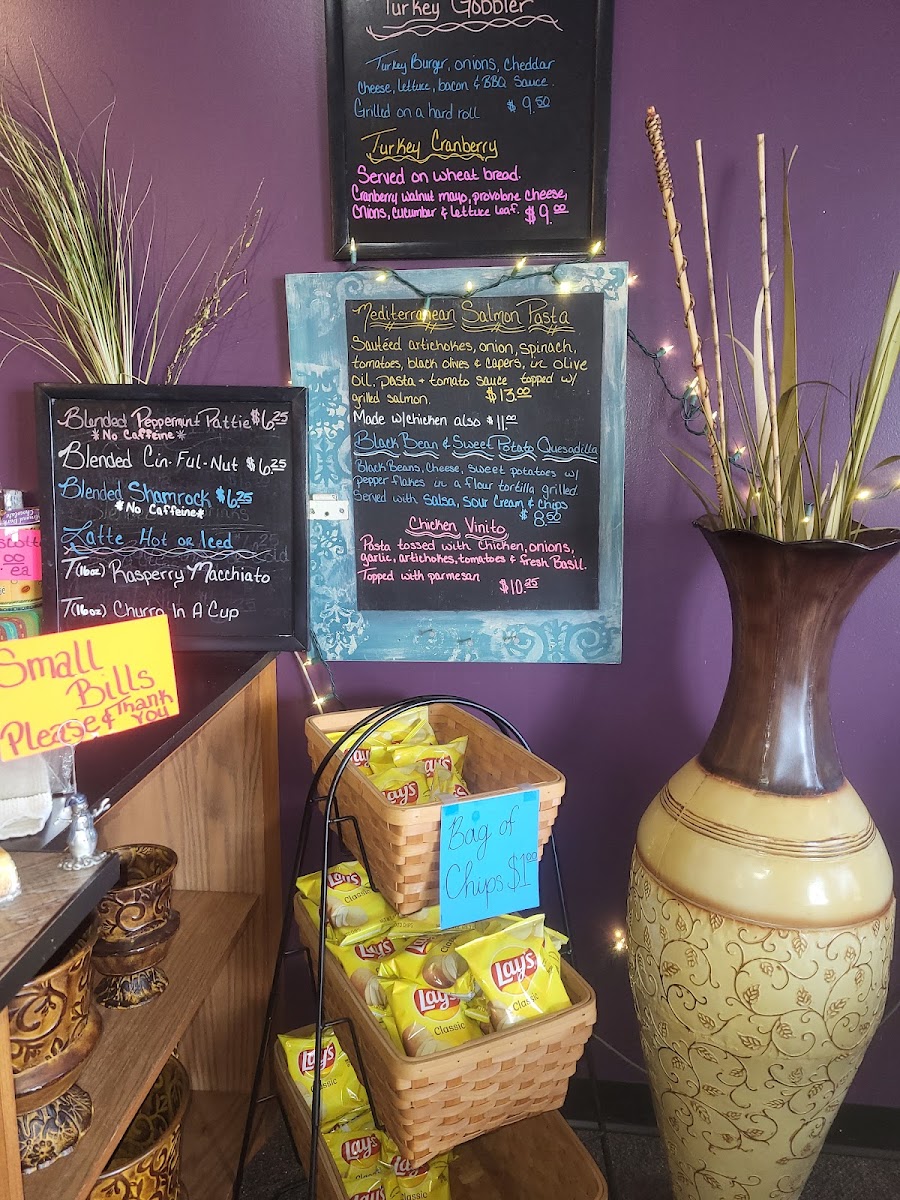 Turkey Gobbler
Turkey Burger, onions, cheddar
cheese, lettuce, bacon & BBQ Sauce.
Grilled on a hard roll $9.50
Turkey Cranberry
Served on wheat bread.
Cranberry walnut mayo, provolone cheese,
onions, cucumber & lettuce leaf. $9.00
Mediterranean Salmon Pasta
Sautéed artichokes, onion, spinach,
tomatoes, black olives & capers, in olive
oil, pasta + tomato sauce topped w/
grilled salmon. $13.00
Made w/chicken also $11.00
Black Bean & Sweet Potato Quesadilla
Black Beans, Cheese, sweet potatoes w/
pepper flakes in a flour tortilla grilled.
Served with salsa, sour cream & chips
$8.50
Chicken Vinito
Pasta tossed with chicken, onions,
garlic, artichokes, tomatoes & fresh Basil.
Topped with parmesan $10.25
Blended Peppermint Pattie $6.25
*No Caffeine*
Blended Cin-Ful-Nut $6.25
Blended Shamrock $6.25
*No Caffeine*
Latte Hot or Iced
T(16oz) Rasperry Macchiato
T(16oz) Churro In A Cup
ea
Small
Bills
Please & Thank
You
Bag of
Chips $1.00
Lay's
Lay's
Lay's
Lay's
Classic
Lay's
Lay's
Classic
Lay's
Classic
Lay's
Classic
Lay's
Lay's
Lay's